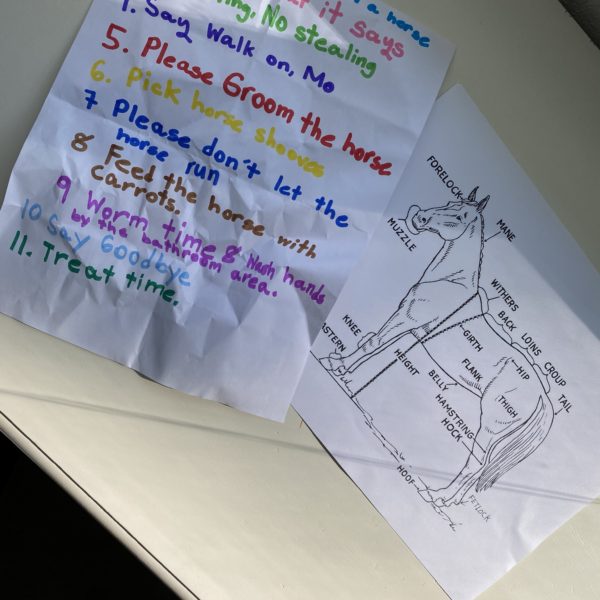 a horse
it says
ing. No stealing
1. Say Walk on, Mo
5. Please Groom the horse
6. Pick horse shooves
7 Please don't let the
horse run
8 Feed the horse with
carrots.
9 Worm time & Wash hands
by the bathroom area.
10 Say Goodbye
11. Treat time.
FORELOCK
MUZZLE
MANE
WITHERS
BACK
LOINS
CROUP
TAIL
GIRTH
HIP
FLANK
THIGH
KNEE
ASTERN
HEIGHT
BELLY
HAMSTRING
HOCK
HOOF
FETLOCK